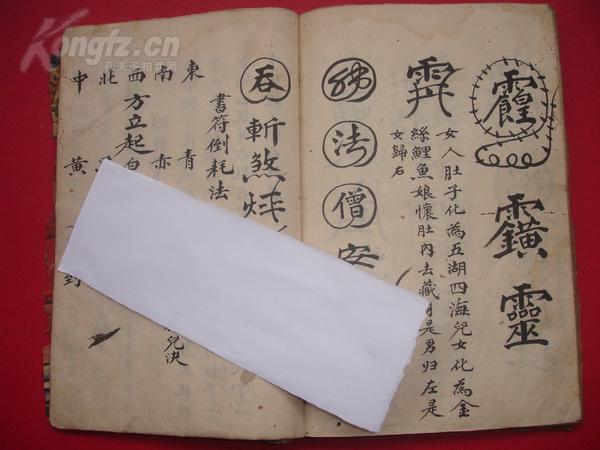 靈
女人肚子化為五湖四海兒女化為金
絲鯉魚娘懷肚內去藏是男归左是
女歸石
佛法僧安
吞斬煞
書符倒耗法
東青
南赤
西方立起白
北
中黄
兒决
Kongfz.cn
孔夫子拍卖网